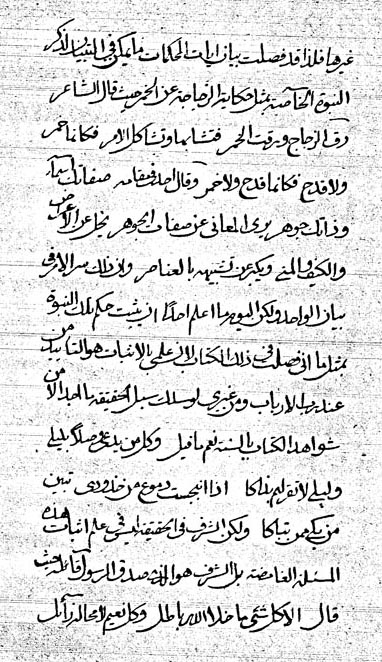 غيرها فلذا قد فصلت بيان ايات المحكمات ما يمكن في التبيان لذكر
النبوة الخاصة بمثل حكاية الزجاجة عن الخمر حيث قال الشاعر
رق الزجاج ورقت الخمر فتشابها وتشاكل الامر فكانما خمر
ولا قدح فكانما قدح ولا خمر وقال احد في مقامه صفاتك اسماء
وذاتك جوهر يرى المعاني عن صفات الجوهر يجل عن الاعراض
والكيف والمتى ويكبر عن تشبيهه بالعناصر وان ذلك سر الامر في
بيان الواحد ولكن اليوم ما اعلم احدا ان يثبت حكم تلك النبوة
بمثل ما اني فصلت في ذلك الكتاب لان علمي بالاثبات هو التاييد من
عند رب الارباب ومن غيري لو سلك سبل الحقيقة بالجدال من
شواهد الكتاب بالسنة نعم ما قيل وكل من يدعي وصلا بليلى
وليلى لا تقر لهم بذاكا اذا انبجست دموع من خدود تبين
من بكى ممن تباكا ولكن الشرف في الحقيقة ليس في علم اثبات هذه
المسئلة الغامضة بل الشرف هو الذي صدق الرسول قائله حيث
قال الا كل شئ ما خلا الله باطل وكل نعيم لا محالة زائل